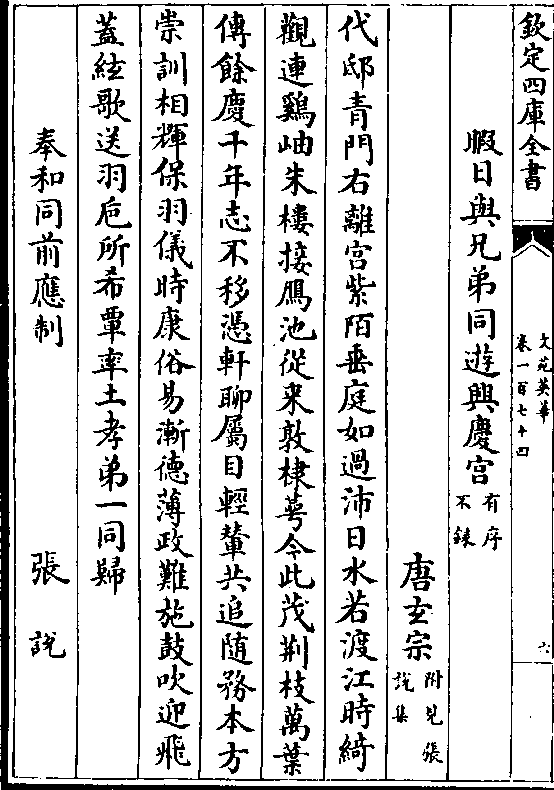 欽定四庫全書
文苑英華
卷一百七十四
六
暇日與兄弟同遊興慶宮 有序不錄
唐玄宗 附見張說集
代邸青門右離宮紫陌垂庭如過沛日水若渡江時綺
觀連鷄岫朱樓接鴈池從来敦棣萼今此茂荆枝萬葉
傳餘慶千年志不移憑軒聊屬目輕輦共追随務本方
崇訓相輝保羽儀時康俗易漸德薄政難施鼓吹迎飛
蓋絃歌送羽巵所希覃率土孝弟一同歸
奉和同前應制 張說